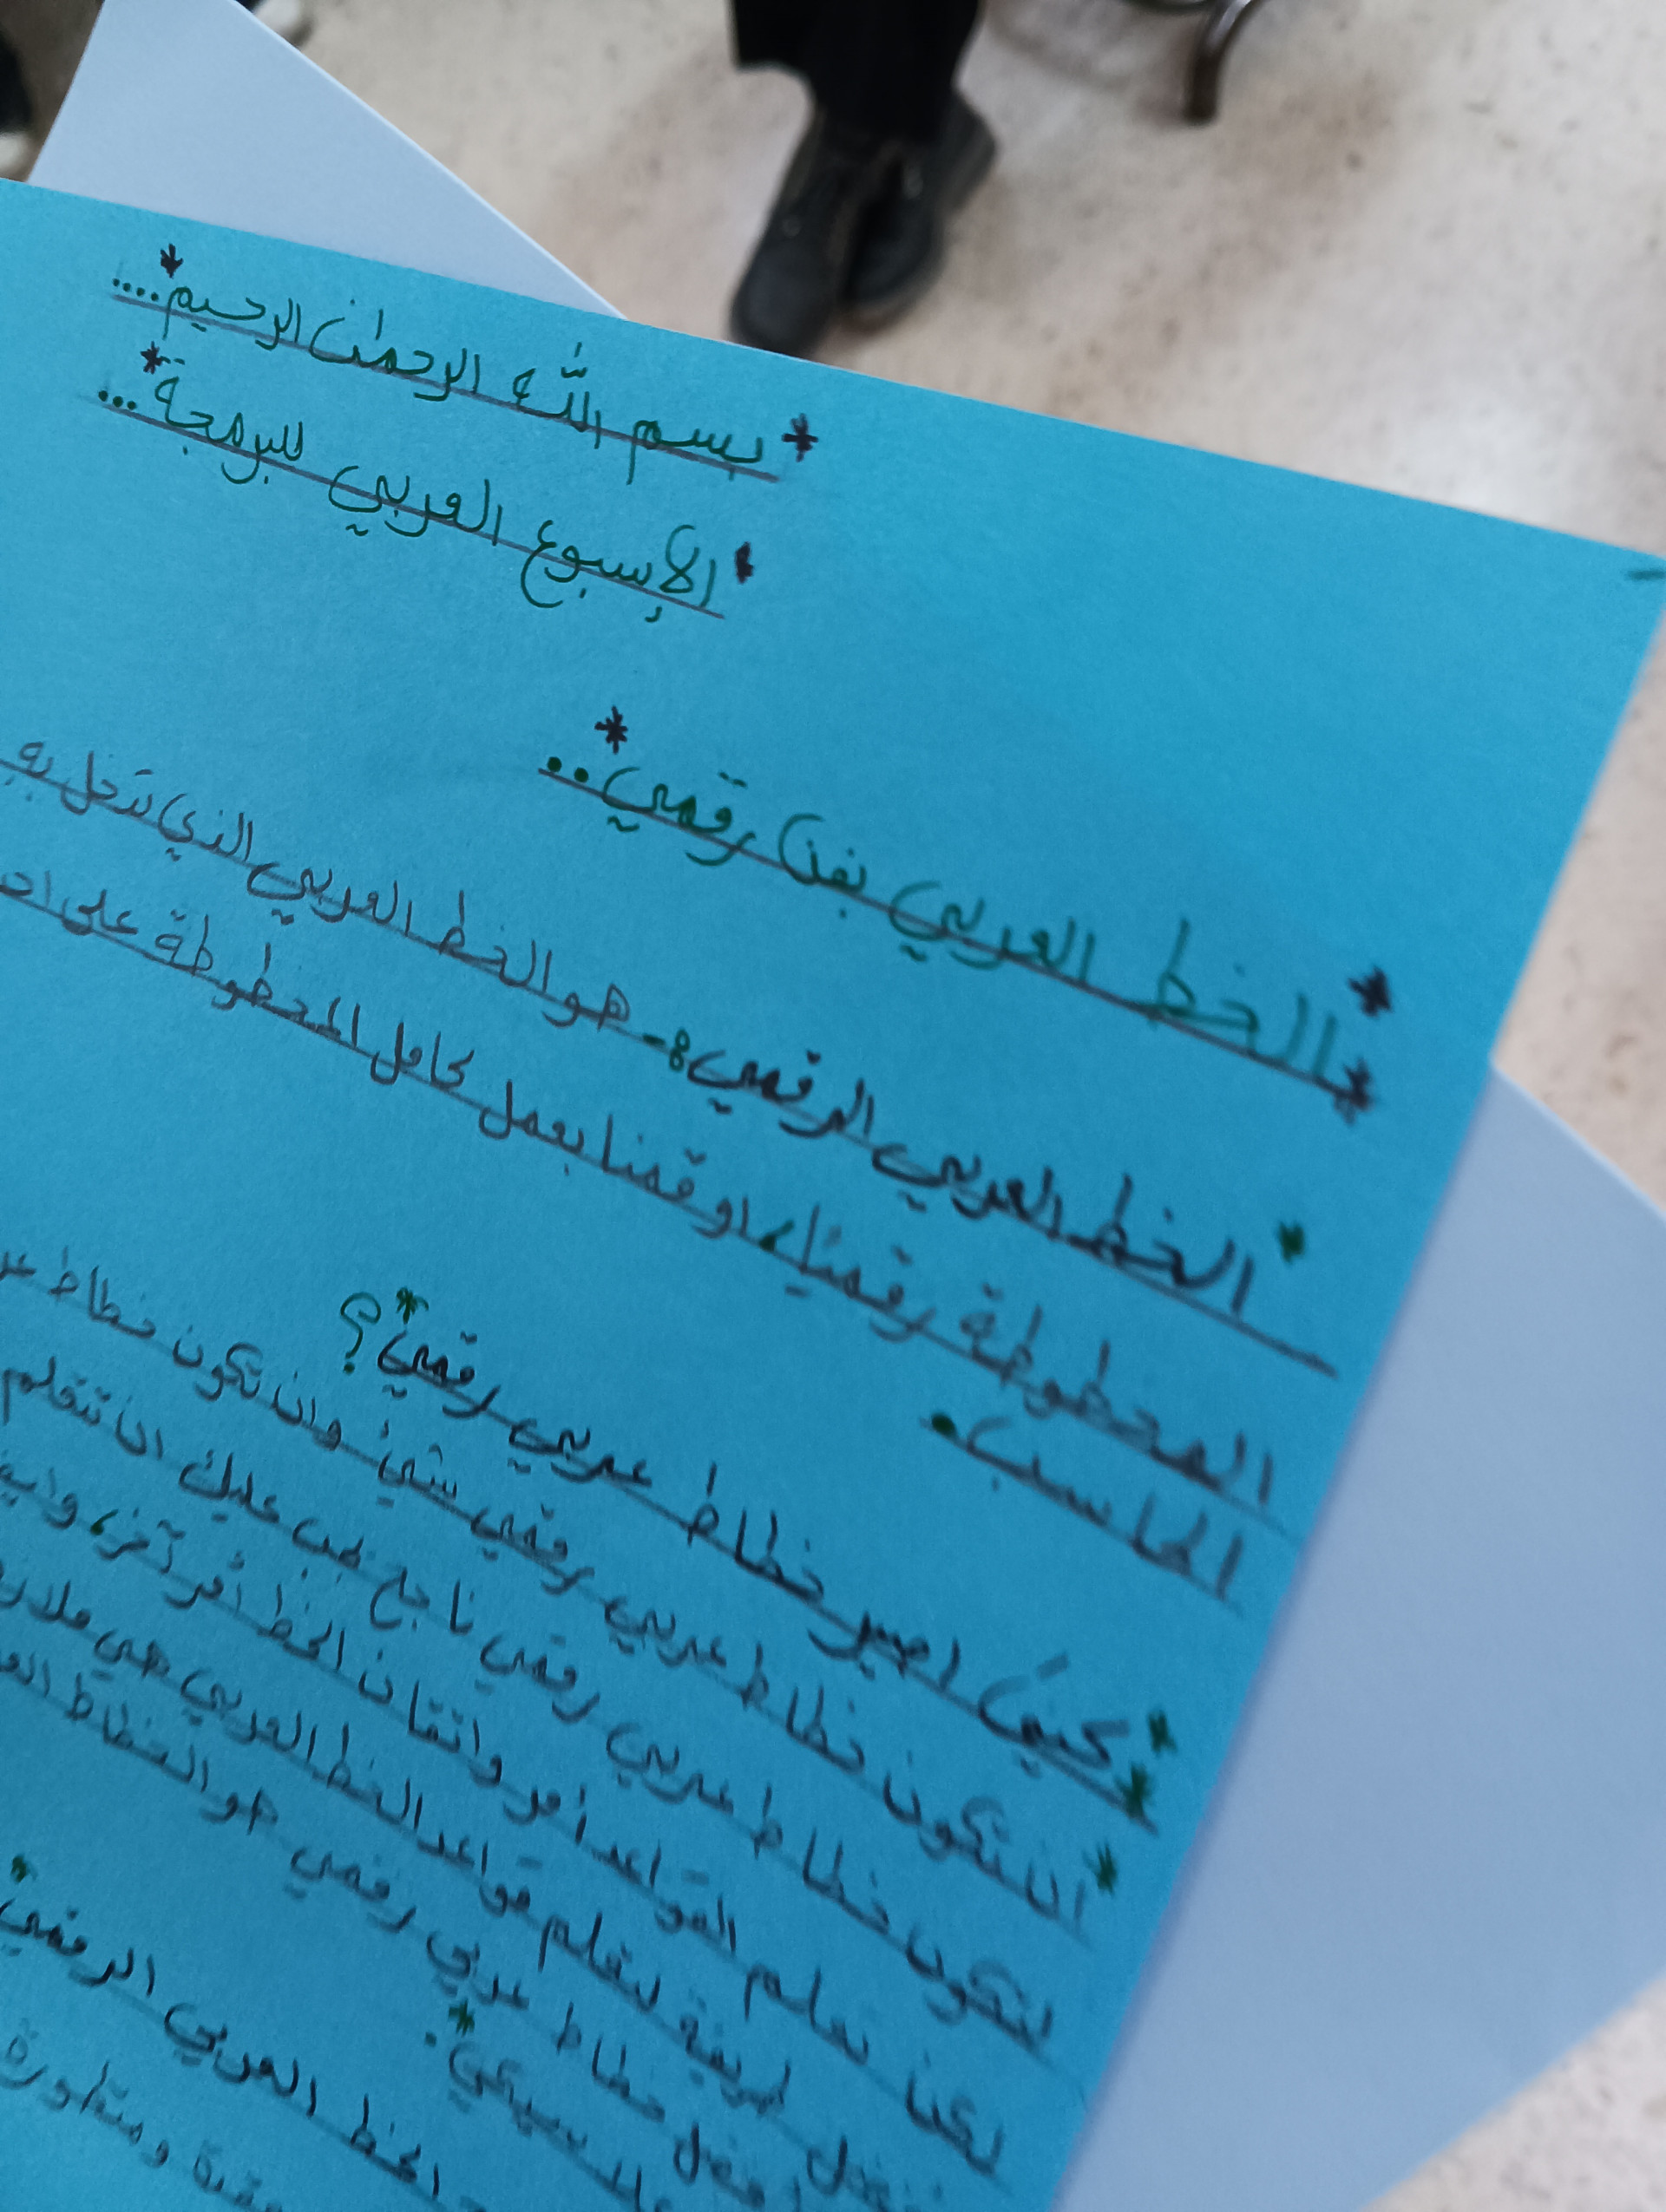 * بسم الله الرحمٰن الرحيم* ....
* الإسبوع العربي للبرمجة* ...
* الخط العربي بفن رقمي* ..
* الخط العربي الرقمي :- هو الخط العربي الذي تدخل به
المخطوطة رقميًا، او قمنا بعمل كامل المخطوطة على
الحاسب.
* كيف اصير خطاط عربي رقمي؟*
* ان تكون خطاط عربي رقمي شيء وان تكون خطاط
لتكون خطاط عربي رقمي ناجح يجب عليك ان تتعلم
لكن تعلم القواعد أمر واتقان الخط أمر آخر،
طريقة لتعلم قواعد الخط العربي هي
أفضل خطاط عربي رقمي هو الخطاط
الخط العربي الرقمي*
ومتطورة